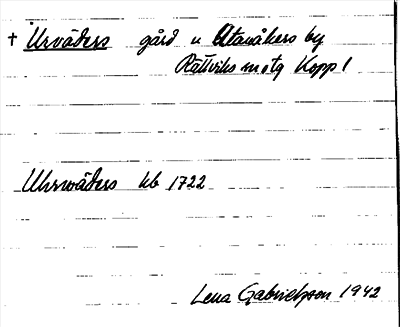 † Urväders gård u Utanåkers by
Rättviks sn o tg Kopp l
Uhrwäders kb 1722
Lena Gabrielsson 1942